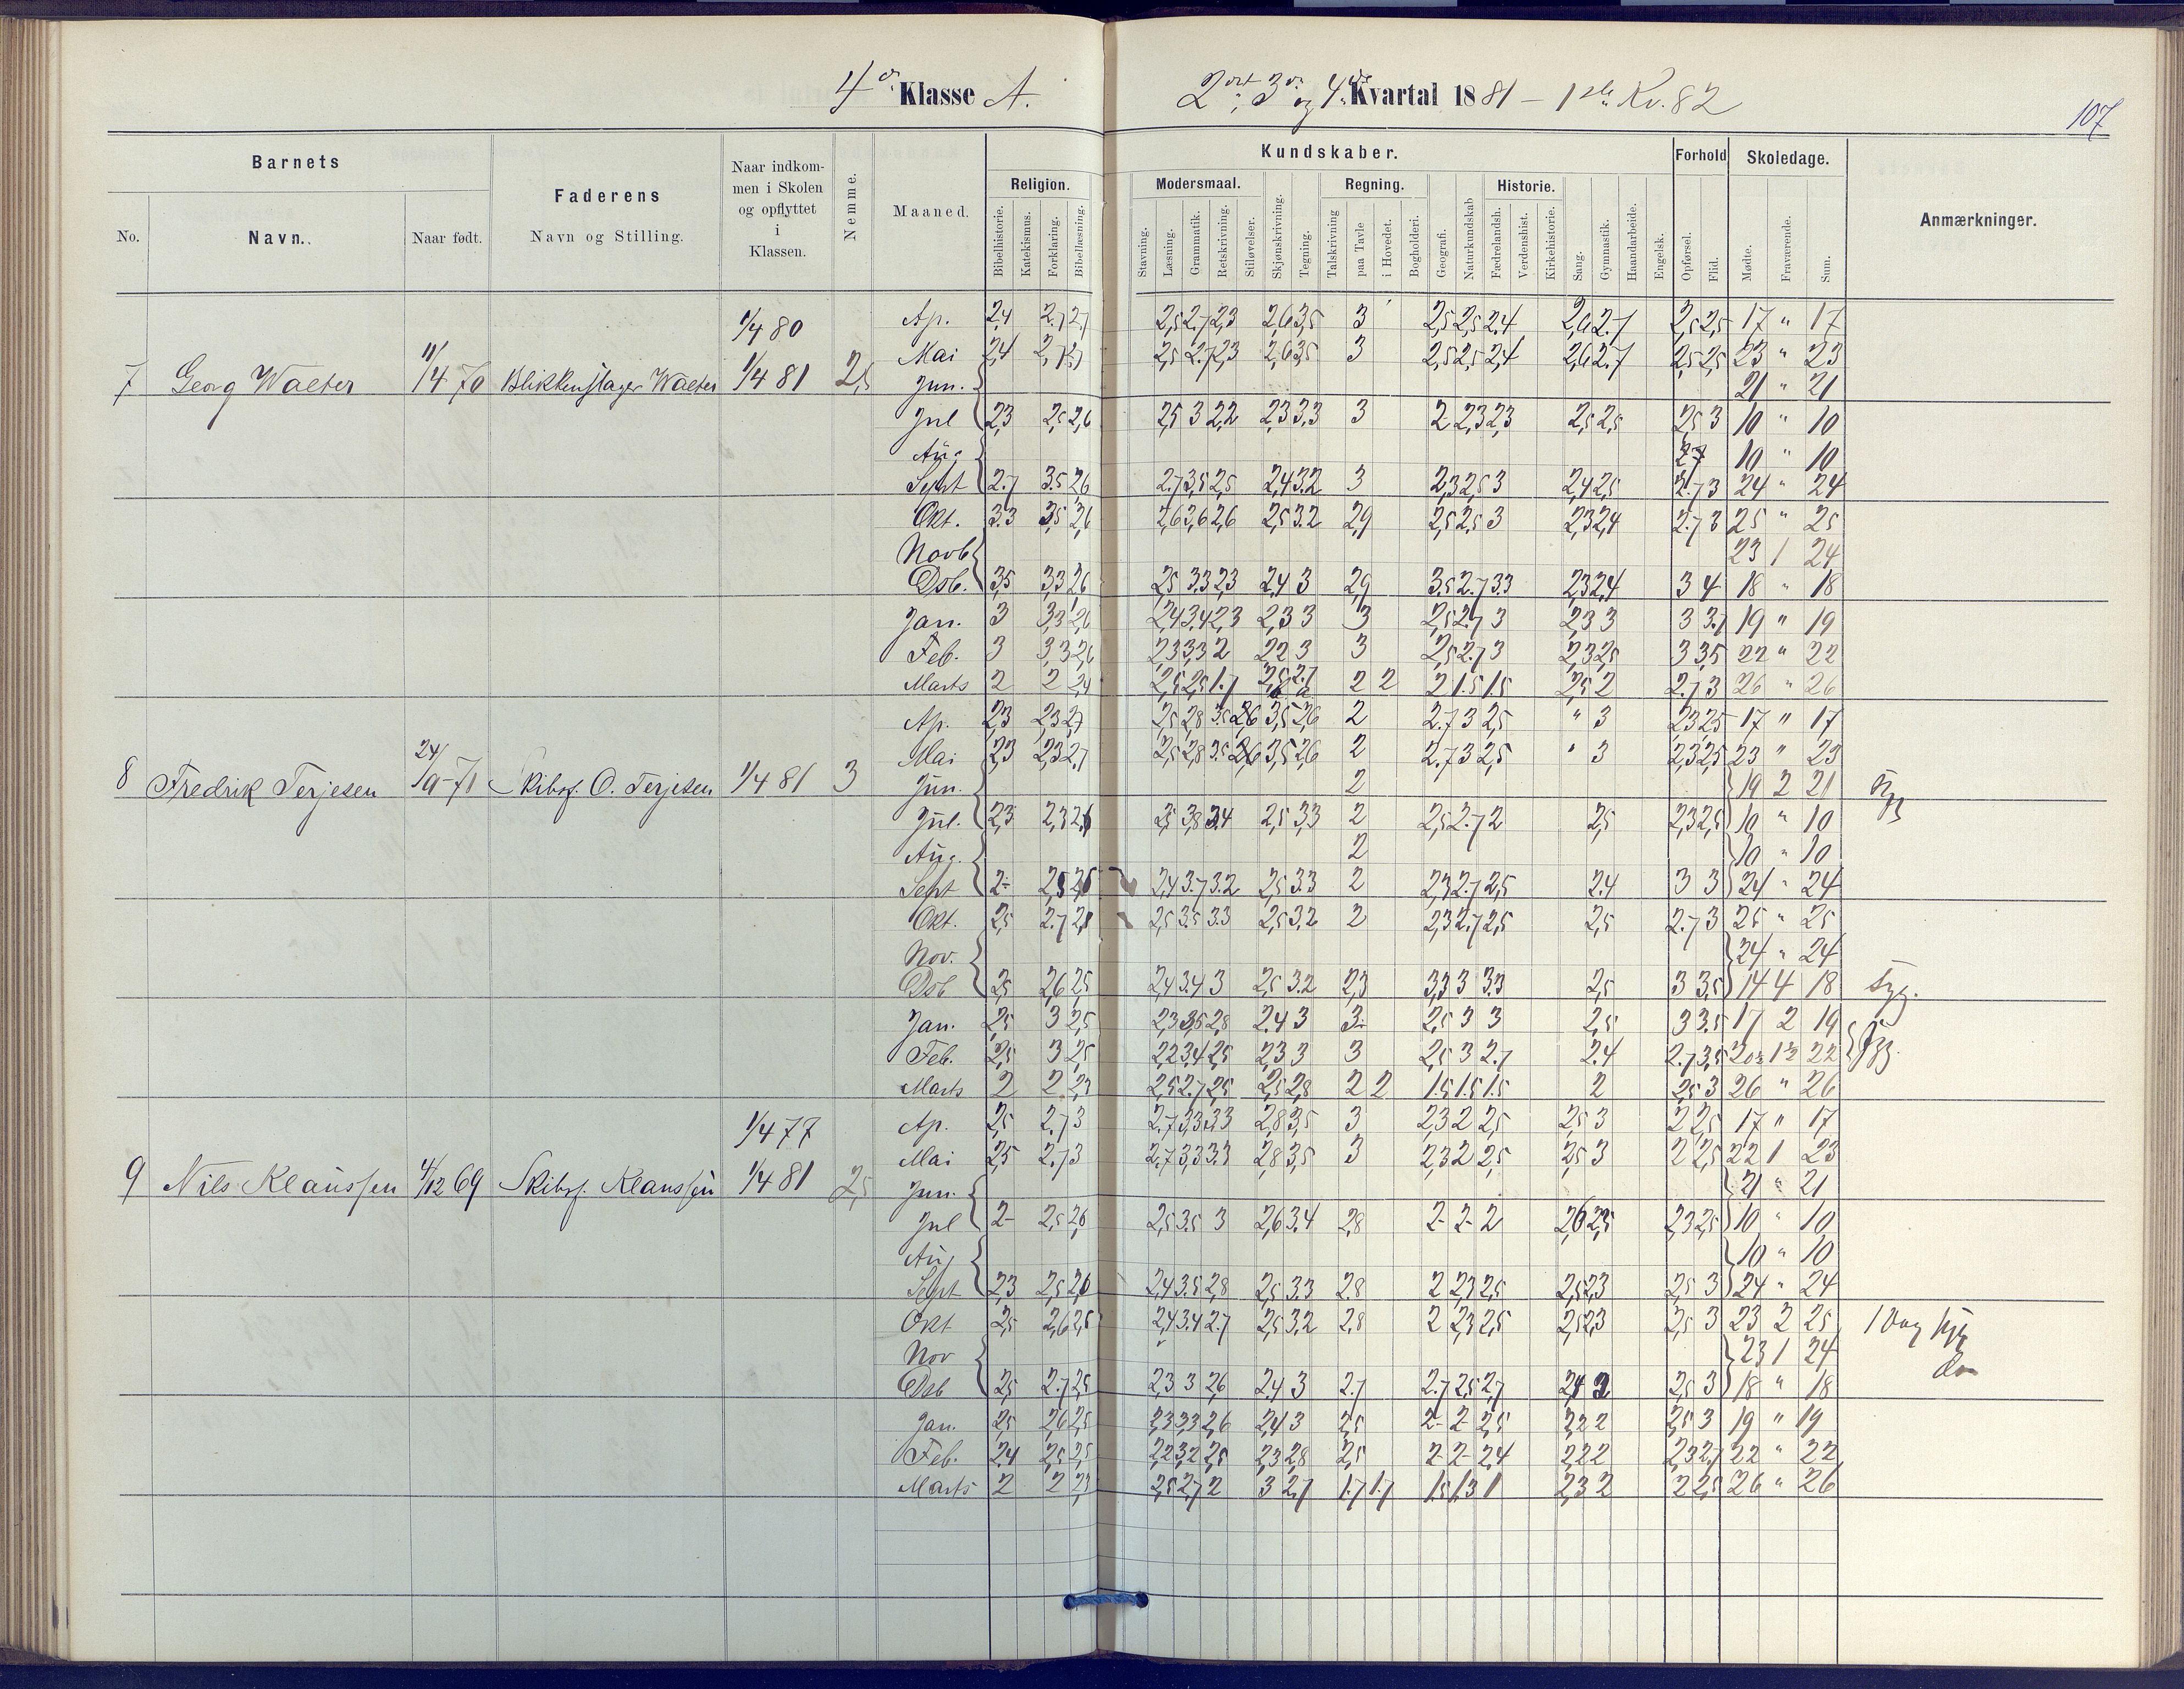 4de Klasse A. 2det, 3die og 4de Kvartal 1881 – 1ste Kv. 82
107
Barnets
No.
Navn.
Naar født.
Faderens
Navn og Stilling.
Naar indkommen i Skolen og opflyttet i Klassen.
Nemme.
Maaned.
Kundskaber.
Religion.
Bibelhistorie. Katekismus. Forklaring. Bibellæsning.
Modersmaal.
Stavning. Læsning. Grammatik. Retskrivning. Stiløvelser.
Skjønskrivning. Tegning.
Regning.
Talskrivning paa Tavle i Hovedet. Bogholderi.
Geografi. Naturkundskab
Historie.
Fædrelandsh. Verdenshist. Kirkehistorie.
Sang. Gymnastik. Haandarbeide. Engelsk.
Forhold
Opførsel. Flid.
Skoledage.
Mødte. Fraværende. Sum.
Anmærkninger.
7 Georg Walter 11/4 70 Blikkenslager Walter 1/4 80 1/4 81 2,5
Ap. 2,4 2.7 2,7 2,5 2.7 2,3 2,6 3,5 3 2,5 2,5 2,4 2,6 2.7 2,5 2,5 17 " 17
Mai 2,4 2,7 2,7 2,5 2.7 2,3 2,6 3,5 3 2,5 2,5 2,4 2,6 2.7 2,5 2,5 23 " 23
Jun. 21 " 21
Jul 2,3 2,5 2,6 2,5 3 2,2 2,3 3,3 3 2 2,3 2,3 2,5 2,5 2,5 3 10 " 10
Aug 10 " 10
Sept 2.7 3.5 2,6 2.7 3,5 2,5 2,4 3.2 3 2,3 2,5 3 2,4 2,5 2.7 3 24 " 24
Okt. 3.3 3,5 2,6 2,6 3,6 2,6 2,5 3.2 2,9 2,5 2,5 3 2,3 2,4 2.7 3 25 " 25
Novb 23 1 24
Dsb. 3,5 3,3 2,6 2,5 3.3 2,3 2,4 3 2,9 3.5 2.7 3.3 2,3 2,4 3 4 18 " 18
Jan. 3 3,3 2,6 2,4 3,4 2,3 2,3 3 3 2,5 2.7 3 2,3 3 3 3.7 19 " 19
Feb. 3 3,3 2,6 2,3 3,3 2 2,2 3 3 2,5 2.7 3 2,3 2,5 3 3,5 22 " 22
Marts 2 2 2,4 2,5 2,5 1.7 2,5 2.7 2 2 2 1.5 1.5 2,5 2 2.7 3 26 " 26
8 Fredrik Terjesen 24/9–71 Skibsf. O. Terjesen 1/4 81 3
Ap. 2,3 2,3 2,7 2,5 2,8 3.5 2,6 3,5 2,6 2 2.7 3 2,5 " 3 2,3 2,5 17 " 17
Mai 2,3 2,3 2.7 2,5 2,8 3.5 2,6 3,5 2,6 2 2.7 3 2,5 " 3 2,3 2,5 23 " 23
Jun. 2 19 2 21 syg
Jul. 2,3 2,3 2,6 2,5 3,8 3,4 2,5 3,3 2 2,5 2.7 2 2,5 2,3 2,5 10 " 10
Aug. 2 10 " 10
Sept 2- 2,5 2,6 2,4 3.7 3.2 2,5 3.3 2 2,3 2.7 2,5 2.4 3 3 24 " 24
Okt. 2,5 2.7 2,8 2,5 3.5 3.3 2,5 3.2 2 2,3 2.7 2,5 2,5 2.7 3 25 " 25
Nov. 24 " 24
Dsb 2,5 2,6 2,5 2,4 3.4 3 2,5 3.2 2,3 3,3 3 3.3 2,5 3 3,5 14 4 18 syg.
Jan. 2,5 3 2,5 2,3 3,5 2,8 2.4 3 3 2,5 3 3 2,5 3 3.5 17 2 19 syg.
Feb. 2,5 3 2,5 2,2 3,4 2,5 2,3 3 3 2,5 3 2.7 2.4 2.7 3,5 20½ 1½ 22
Marts 2 2 2,3 2,5 2.7 2,5 2,5 2,8 2 2 1.5 1.5 1.5 2 2,5 3 26 " 26
9 Nils Klaussen 4/12 69 Skibsf. Klaussen 1/4 77 1/4 81 2,5
Ap. 2,5 2.7 3 2.7 3,3 3.3 2,8 3,5 3 2,3 2 2,5 2,5 3 2 2,5 17 " 17
Mai 2,5 2.7 3 2.7 3,3 3.3 2,8 3,5 3 2,3 2 2,5 2,5 3 2 2,5 22 1 23
Jun. 21 " 21
Jul 2- 2,5 2,6 2,5 3.5 3 2,6 3,4 2,8 2- 2- 2 2,6 2,5 2,3 2,5 10 " 10
Aug 10 " 10
Sept 2,3 2,5 2,6 2,4 3.5 2,8 2,5 3.3 2.8 2 2,3 2,5 2,5 2,3 2,5 3 24 " 24
Okt 2,5 2,6 2,5 2,4 3.4 2.7 2,5 3.2 2,8 2 2,3 2,5 2,5 2,3 2,5 3 23 2 25 1 Dag syg
Nov 23 1 24 do
Dsb 2,5 2.7 2,5 2,3 3 2,6 2.4 3 2.7 2.7 2,5 2.7 2,4 2 2,5 3 18 " 18
Jan. 2,5 2,6 2,5 2,3 3,3 2,6 2,4 3 2,5 2- 2 2,5 2,2 2 2,5 3 19 " 19
Feb. 2,4 2,5 2,5 2,2 3,2 2,5 2,3 2,8 2,5 2- 2- 2,4 2,2 2 2,3 2,7 22 " 22
Marts 2 2 2,3 2,5 2,7 2 3 2.7 1.7 1.7 1.5 1.3 1 2,3 2 2 2,5 26 " 26